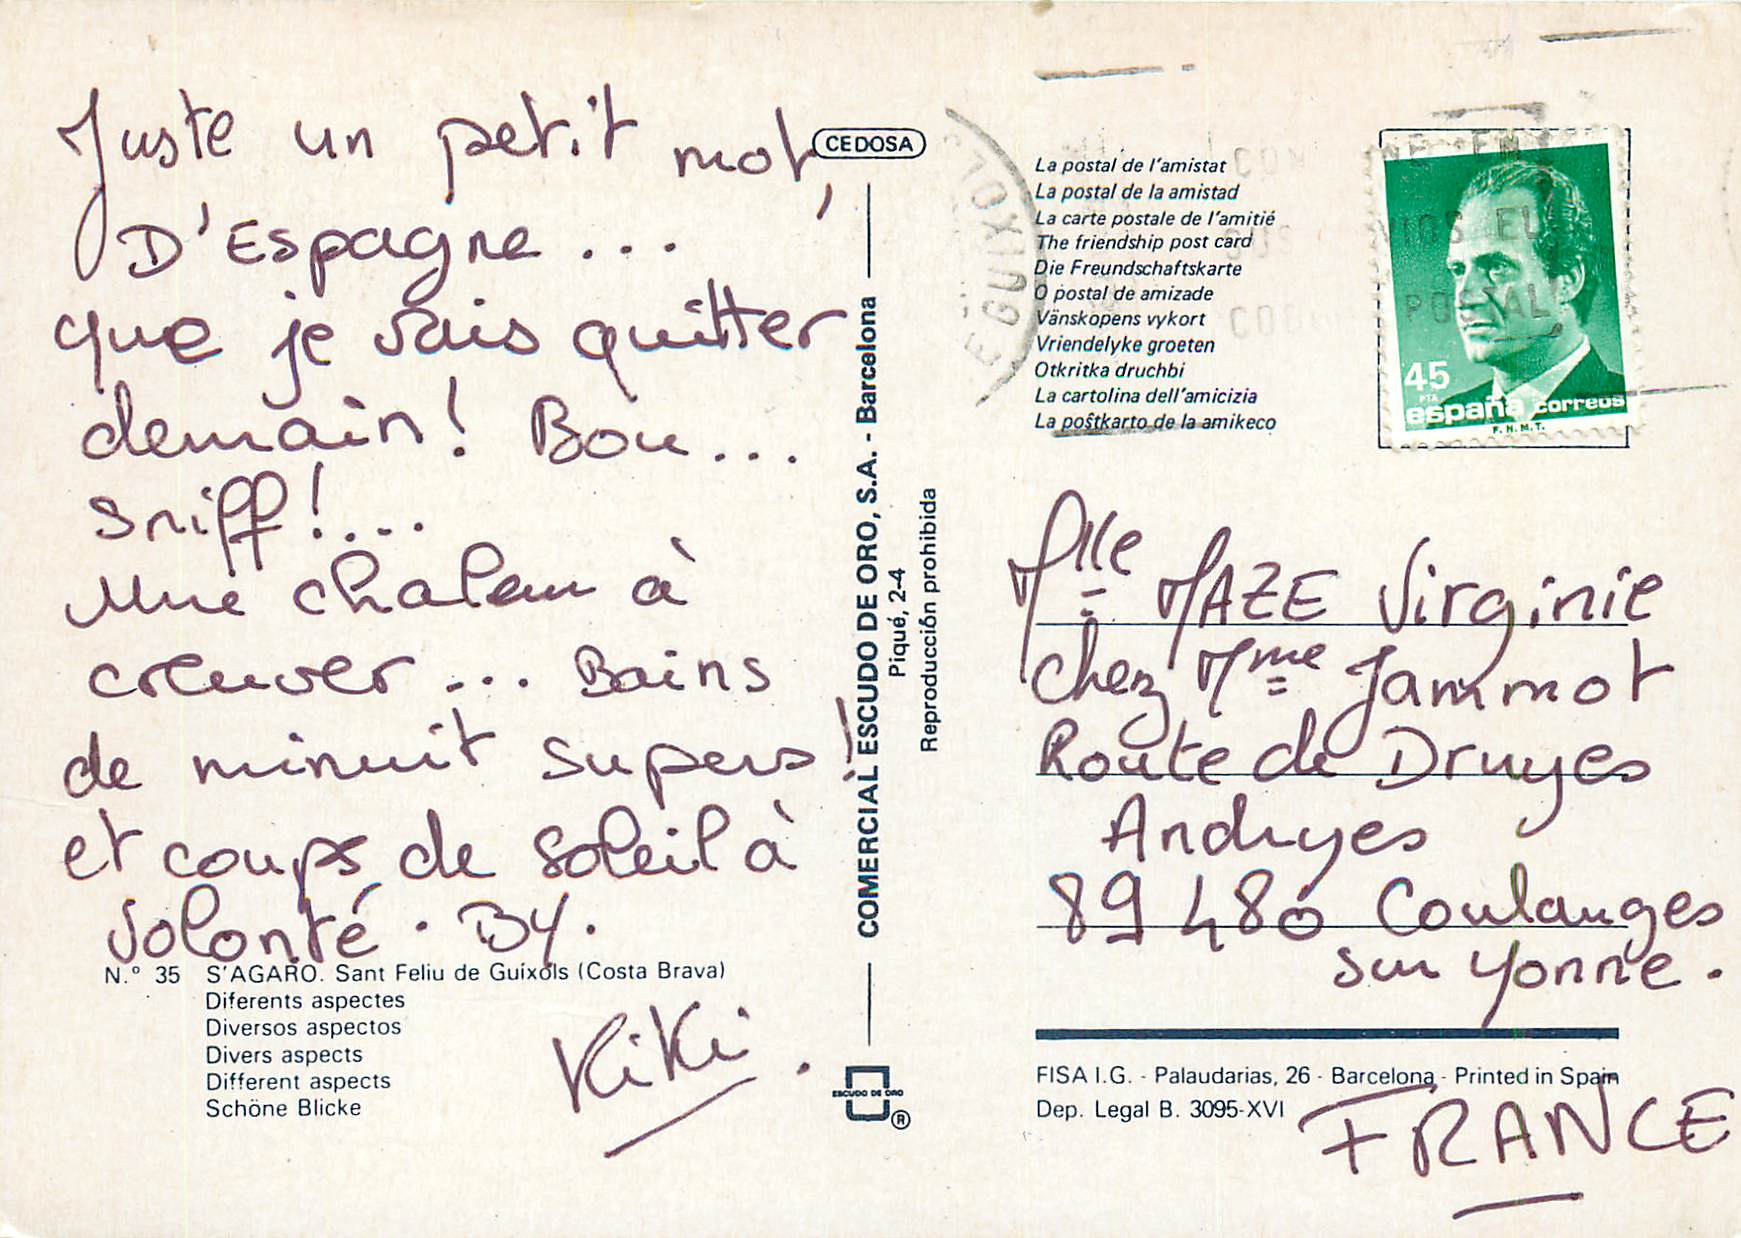 Juste un petit mot,
D'Espagne...
que je vais quitter
demain! Bou...
sniff!...
Une chaleur à
creuver... Bains
de minuit supers!
et coups de soleil à
volonté. By.
Kiki.
N.º 35 S'AGARO. Sant Feliu de Guíxols (Costa Brava)
Diferents aspectes
Diversos aspectos
Divers aspects
Different aspects
Schöne Blicke
CEDOSA
COMERCIAL ESCUDO DE ORO, S.A. - Barcelona
Piqué, 2-4
Reproducción prohibida
ESCUDO DE ORO
®
La postal de l'amistat
La postal de la amistad
La carte postale de l'amitié
The friendship post card
Die Freundschaftskarte
O postal de amizade
Vänskopens vykort
Vriendelyke groeten
Otkritka druchbi
La cartolina dell'amicizia
La poŝtkarto de la amikeco
45
PTA
españa correos
F.N.M.T.
Mlle MAZE Virginie
chez Mme Jammot
Route de Druyes
Andryes
89480 Coulanges
sur Yonne.
FISA I.G. - Palaudarias, 26 - Barcelona - Printed in Spain
Dep. Legal B. 3095-XVI
FRANCE